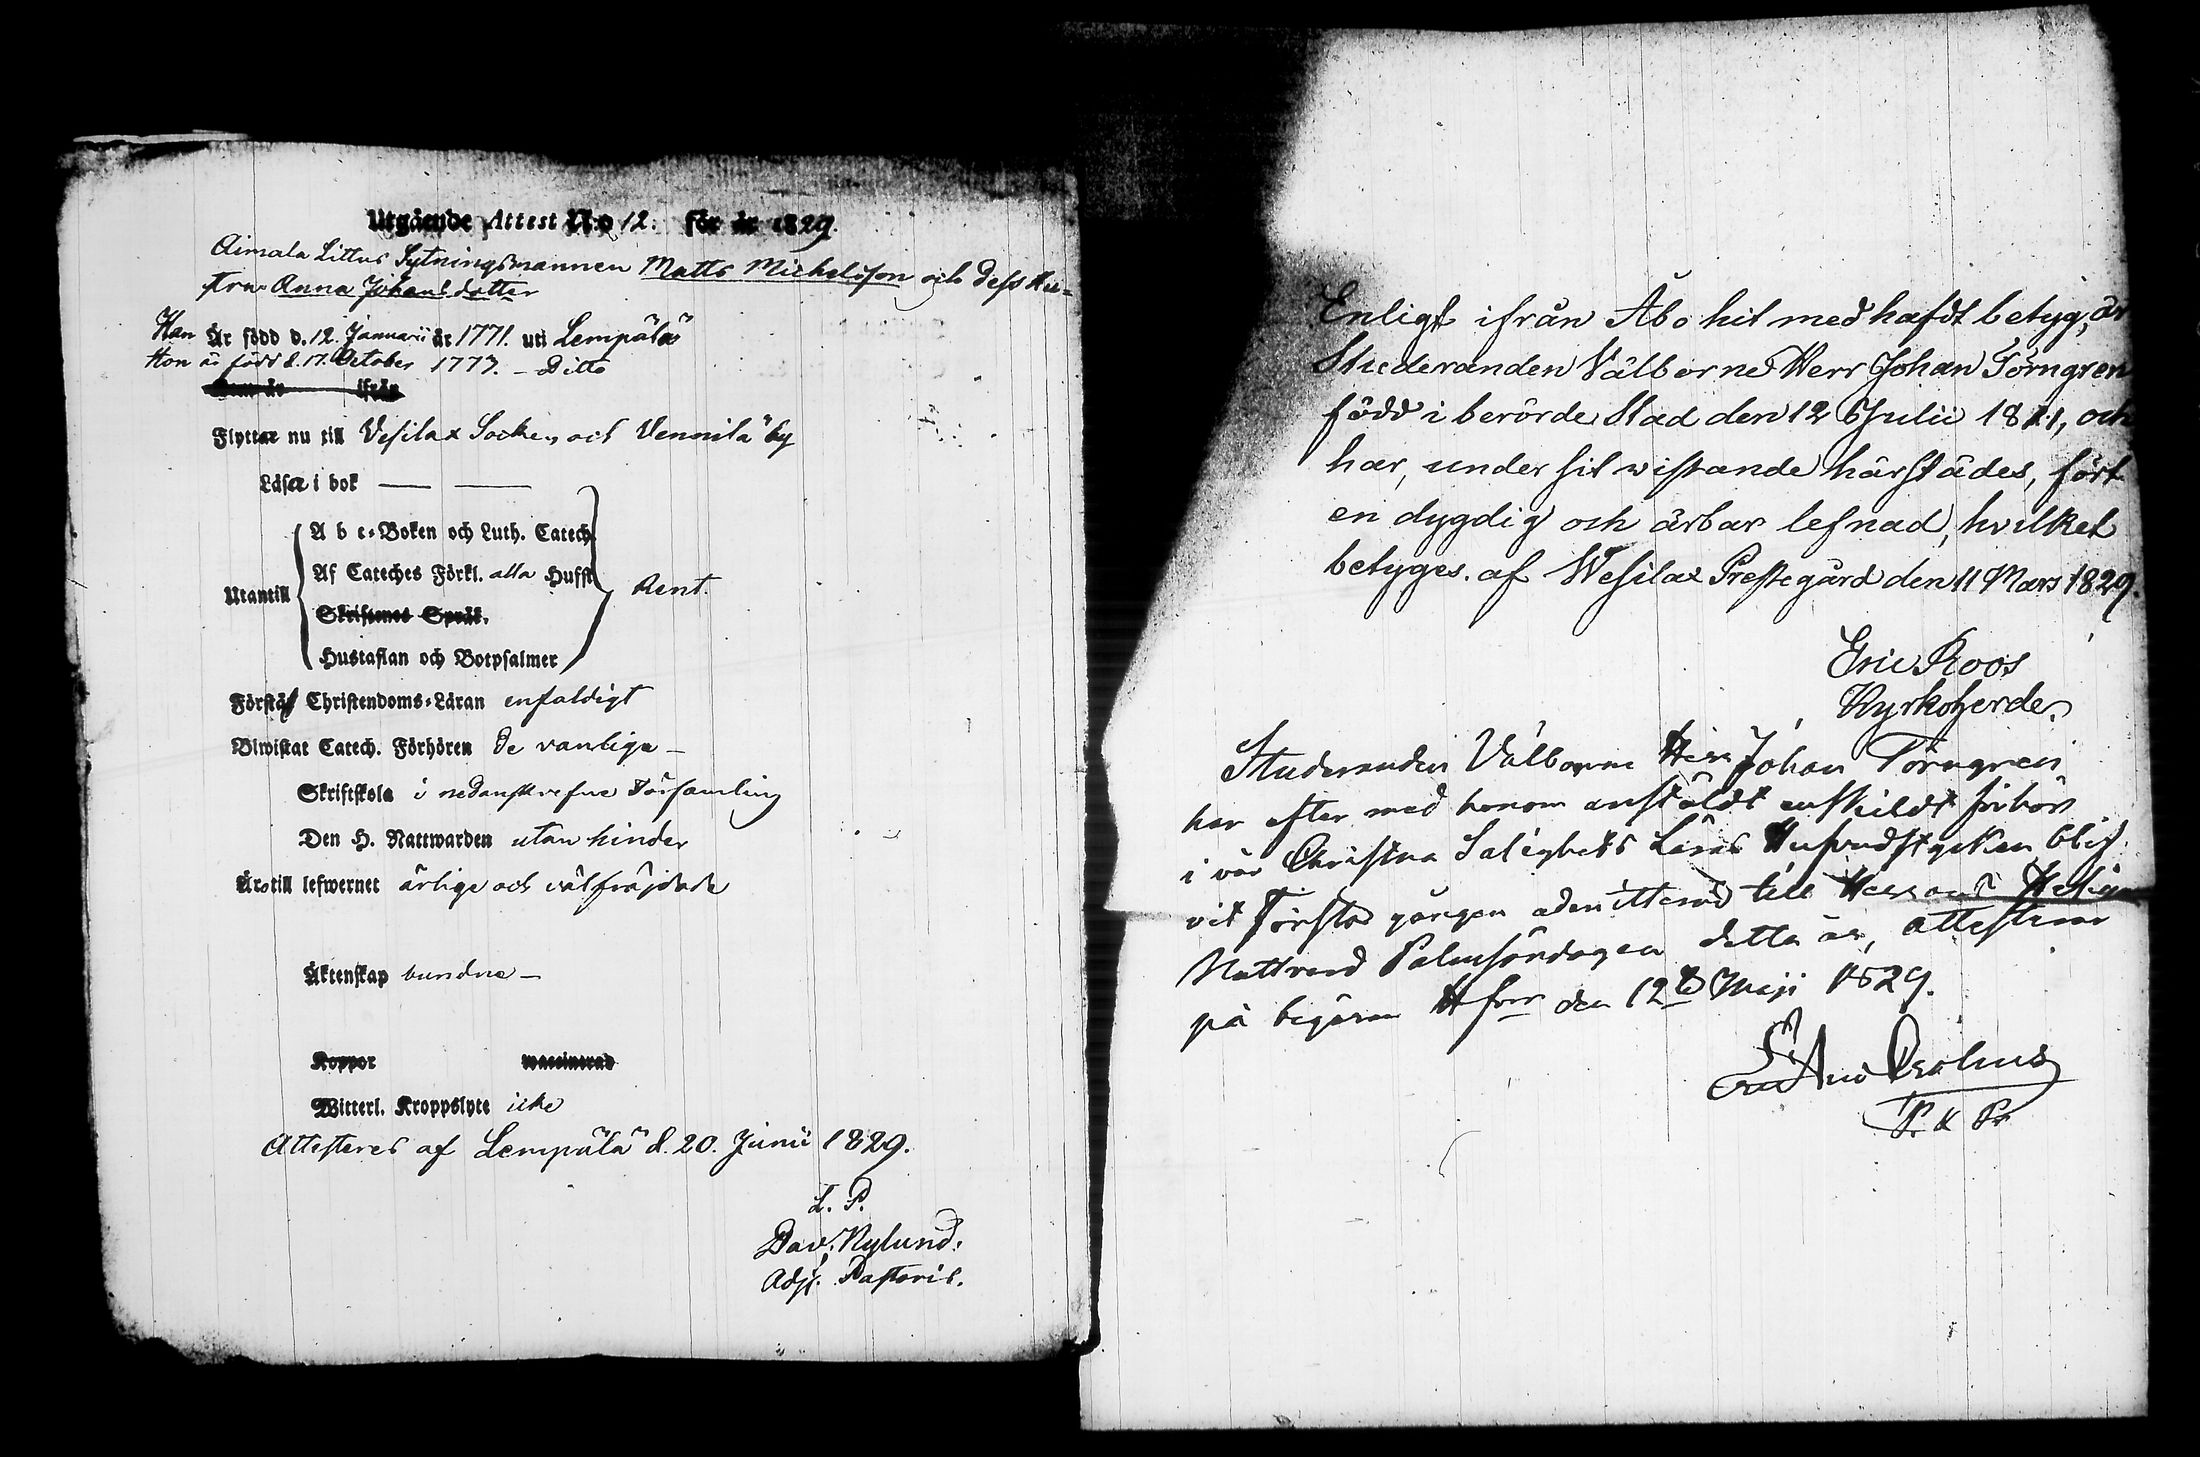 Utgående Attest N:o 12. för år 1829.
Aimala Littus Sytningsmannen Matts Michelsson och dess Hu=
stru Anna Johansdotter
Han Är född d. 12. Januarii år 1771. uti Lempälä
Hon är född d. 17. October 1773. – Ditto
Flyttar nu till Vesilax Socken och Vennilä by
Läsa i bok — —
Utantill
A b c-Boken och Luth. Catech.
Af Cateches Förkl. alla Hufst.
Rent.
Skriftenes Språk.
Hustaflan och Botpsalmer
Förstå Christendoms-Läran enfaldigt
Biwistat Catech. Förhören de vanliga –
Skriftskola i nedanskrefne Församling
Den H. Nattwarden utan hinder
Äro till lefwernet ärlige och välfräjdade
Äktenskap bundne –
Koppor waccinerad
Witterl. Kroppslyte icke
Attesteres af Lempälä d. 20. Junii 1829.
L. P.
Dav. Nylund.
Adj. Pastoris.
Enligt ifrån Åbo hit medhafdt betyg, är
Studeranden Välborne Herr Johan Törngren
född i berörde Stad den 12 Julii 1811, och
har, under sit wistande härstädes, fört
en dygdig och ärbar lefnad, hvilket
betyges. af Wesilax Prestegård den 11 Mars 1829.
Eric Roos
Kyrkoherde.
Studeranden Välborne Herr Johan Törngren
har efter med honom anstäldt enskildt förhör
i vår Christna Salighets Läras Hufvudstycken blif
vit Första gången admitterad till Herrans Helga
Nattvard Palmsöndagen detta år, attesterar
på begäran H:fors den 12te Maji 1829.
P. &